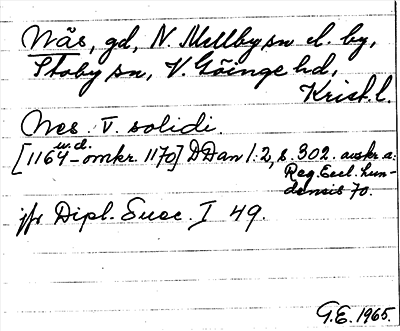 Näs, gd, N. Mellby sn el. by,
Stoby sn, V. Göinge hd,
Krist. l.
Nes. V. solidi.
u.d.
[1164-omkr. 1170] DDan 1:2, s. 302. avskr. a:
Reg. Eccl. Lun-
densis 70.
jfr Dipl. Suec. I 49.
G.E. 1965.